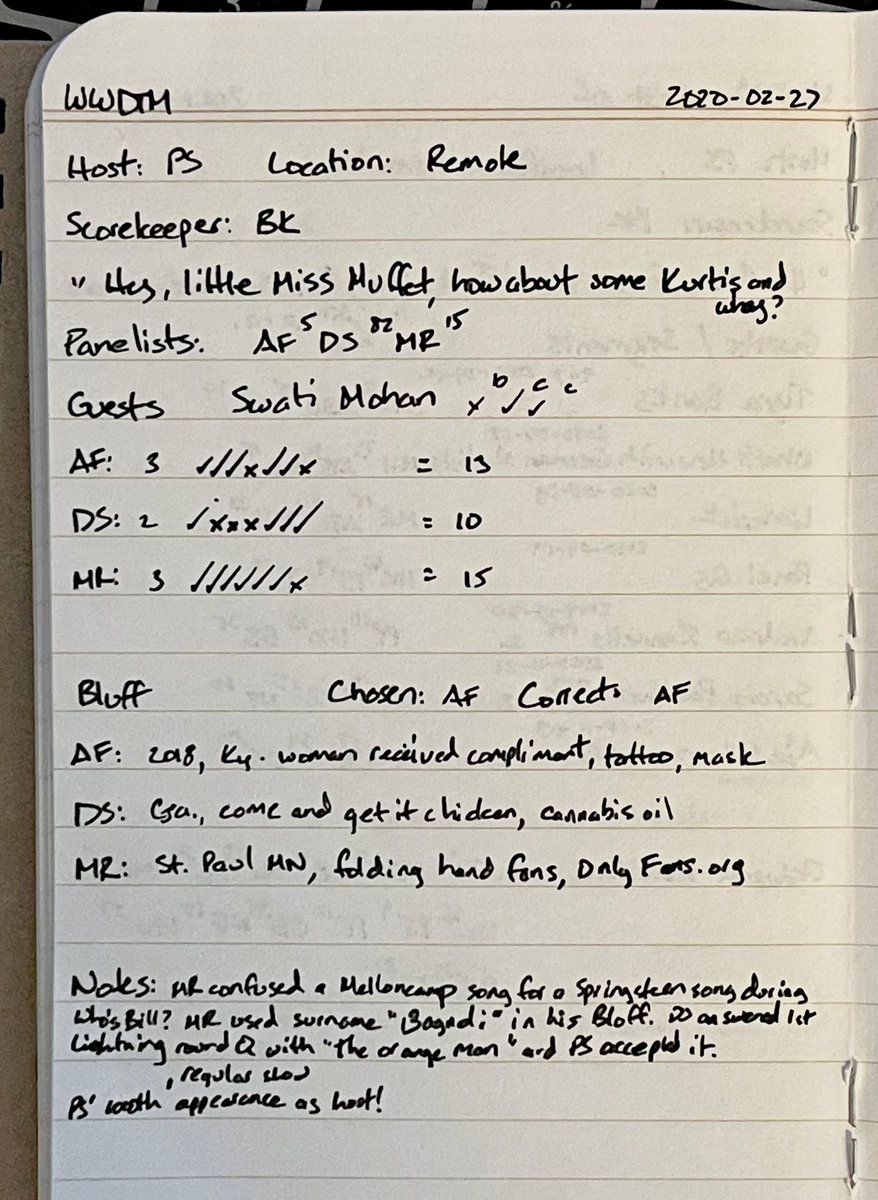 WWDTM 2020-02-27
Host: PS Location: Remote
Scorekeeper: BK
"Hey, little Miss Muffet, how about some Kurtis and
whey?
Panelists: AF⁵ DS⁸² MR¹⁵
Guests Swati Mohan x ᵇ✓ ᶜ✓ ᶜ
AF: 3 ✓✓✓x✓✓x = 13
DS: 2 ✓xxx✓✓✓ = 10
MR: 3 ✓✓✓✓✓✓x = 15
Bluff Chosen: AF Correct: AF
AF: 2018, Ky. woman received compliment, tattoo, mask
DS: Ga., come and get it chicken, cannabis oil
MR: St. Paul MN, folding hand fans, Only Fans.org
Notes: MR confused a Mellencamp song for a Springsteen song during
Who's Bill? MR used surname in his Bluff. DS answered 1st
Lightning round Q with "the orange man" and PS accepted it.
, regular show
PS' appearance as host!